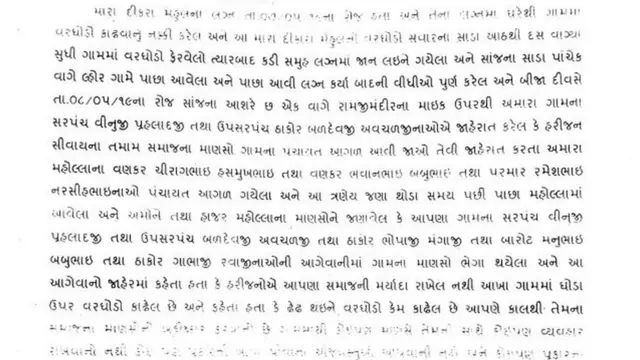 મારા દીકરા મેહુલના લગ્ન તા.૦૭/૦૫/૧૯ના રોજ હતા અને તેના લગ્નમાં ઘરેથી ગામમાં
વરઘોડો કાઢવાનું નક્કી કરેલ અને આ મારા દીકરા મેહુલની વરઘોડો સવારના સાડા આઠથી દસ વાગ્યા
સુધી ગામમાં વરઘોડો ફેરવેલો ત્યારબાદ કડી સમુહ લગ્નમાં જાન લઇને ગયેલા અને સાંજના સાડા પાંચેક
વાગે લ્હોર ગામે પાછા આવેલા અને પાછા આવી લગ્ન કર્યા બાદની વીધીઓ પુર્ણ કરેલ અને બીજા દીવસે
તા.૦૮/૦૫/૧૯ના રોજ સાંજના આશરે છ એક વાગે રામજીમંદીરના માઇક ઉપરથી અમારા ગામના
સરપંચ વીનુજી પ્રહલાદજી તથા ઉપસરપંચ ઠાકોર બળદેવજી અવચળજીનાઓએ જાહેરાત કરેલ કે હરીજન
સીવાયના તમામ સમાજના માણસો ગામના પંચાયત આગળ આવી જાઓ તેવી જાહેરાત કરતા અમારા
મહોલ્લાના વણકર ચીરાગભાઇ હસમુખભાઇ તથા વણકર ભવાનભાઇ બબુભાઇ તથા પરમાર રમેશભાઇ
નરસીહભાઇનાઓ પંચાયત આગળ ગયેલા અને આ ત્રણેય જણા થોડા સમય પછી પાછા મહોલ્લામાં
આવેલા અને અમોને તથા હાજર મહોલ્લાના માણસોને જણાવેલ કે આપણા ગામના સરપંચ વીનુજી
પ્રહલાદજી તથા ઉપસરપંચ બળદેવજી અવચળજી તથા ઠાકોર ભોપાજી મંગાજી તથા બારોટ મનુભાઇ
બબુભાઇ તથા ઠાકોર ગાભાજી રવાજીનાઓની આગેવાનીમાં ગામના માણસો ભેગા થયેલા અને આ
આગેવાનો જાહેરમાં કહેતા હતા કે હરીજનોએ આપણા સમાજની મર્યાદા રાખેલ નથી આખા ગામમાં ઘોડા
ઉપર વરઘોડો કાઢેલ છે અને કહેતા હતા કે ઢેઢ થઇને વરઘોડો કેમ કાઢેલ છે આપણે કાલથી તેમના
સમાજના માણસોનો બહીષ્કાર કરવાનો છે ગામમાથી કોઇપણ માણસે તેમની સાથે કોઇપણ વ્યવહાર
રાખવાનો નથી કોઇ પણ પ્રકારની આપવાની નહી અને કોઇપણ પ્રકારના